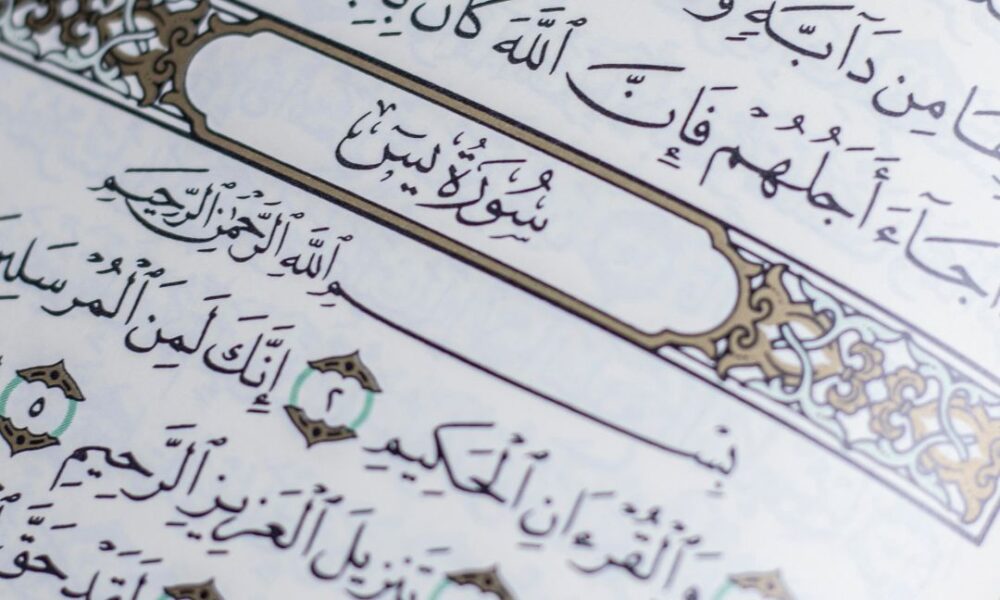 مِن دَآبَّةٍ
جَآءَ أَجَلُهُمْ فَإِنَّ ٱللَّهَ كَانَ
سُورَةُ يسٓ
بِسْمِ ٱللَّهِ ٱلرَّحْمَٰنِ ٱلرَّحِيمِ
وَٱلْقُرْءَانِ ٱلْحَكِيمِ ٢ إِنَّكَ لَمِنَ ٱلْمُرْسَلِينَ
تَنزِيلَ ٱلْعَزِيزِ ٱلرَّحِيمِ ٥
لَقَدْ حَقَّ